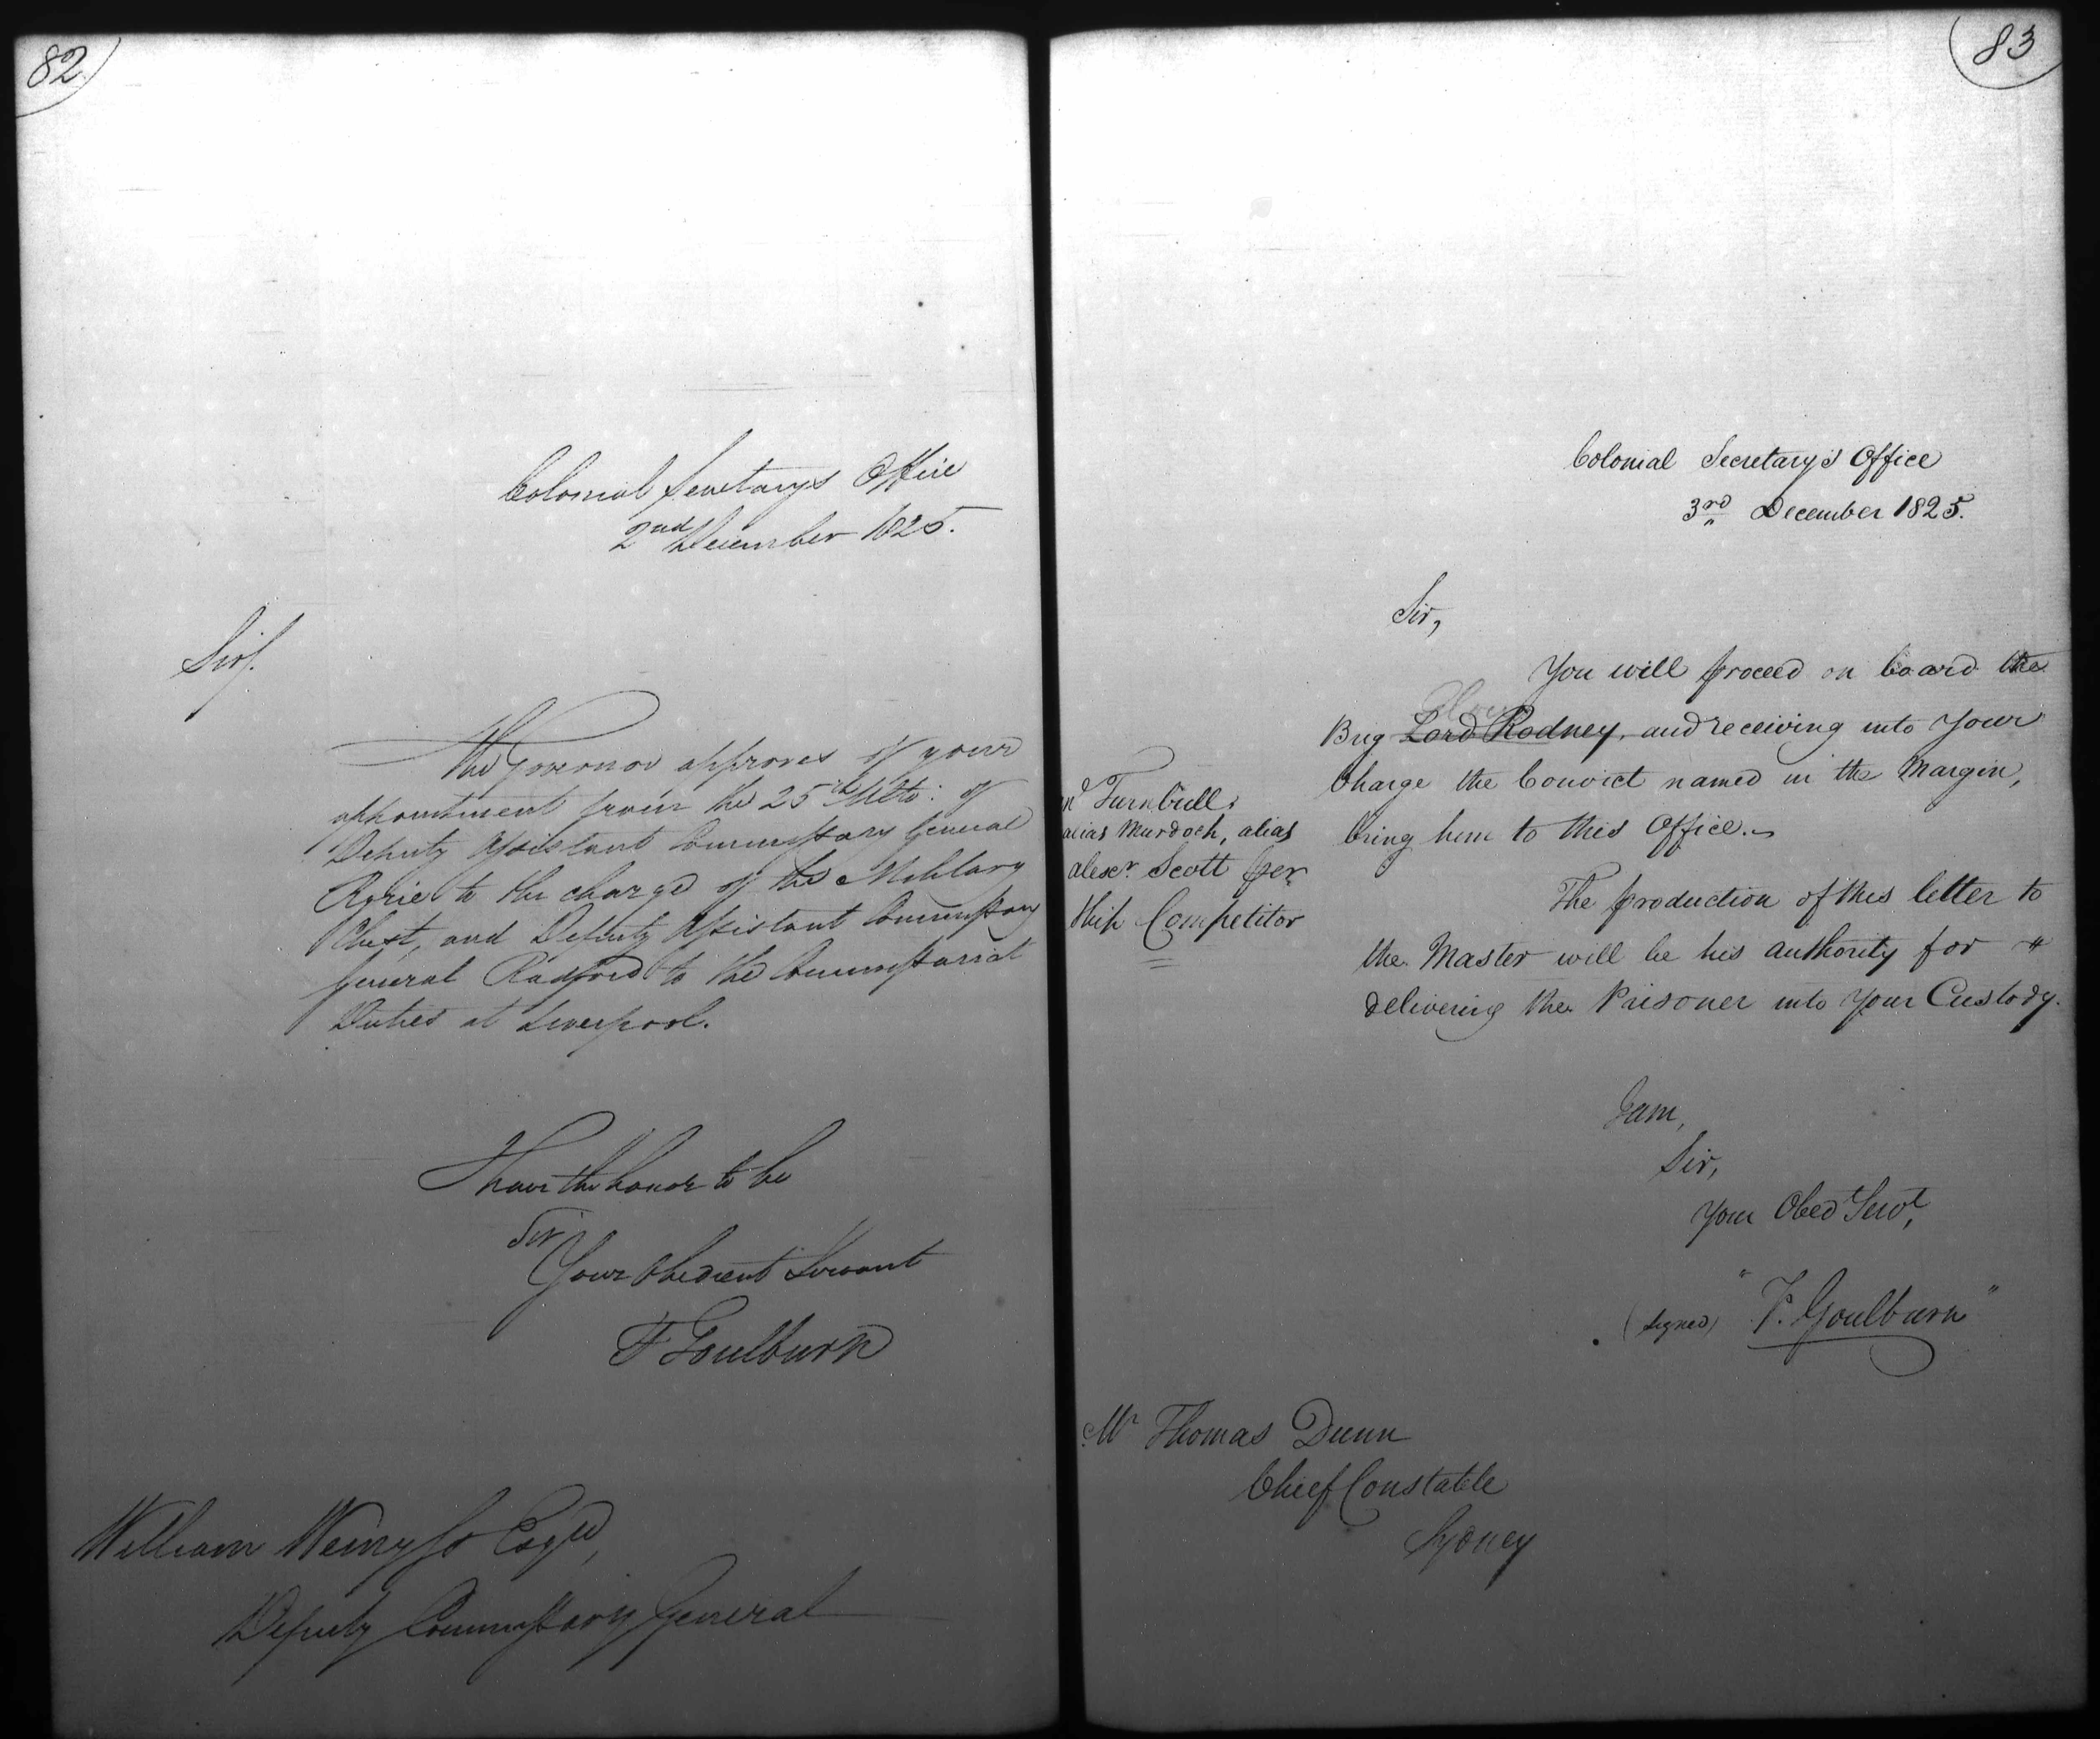 82
Colonial Secretarys Office
2nd December 1825.
Sir,
The Governor approves of your
appointment from the 25th Ulto: of
Deputy Assistant Commissary General
to the charge of the Military
Chest, and Deputy Assistant Commissary
General Radford to the Commissariat
Duties at Liverpool.
I have the honor to be
Sir
Your Obedient Servant
F Goulburn
William Wemyss Esqre,
Deputy Commissary General
83
Colonial Secretary's Office
3rd December 1825.
Sir,
You will proceed on board the
Brig Lord Rodney, and receiving into your
Charge the Convict named in the Margin,
bring him to this Office.
Turnbull,
alias Murdoch, alias
Alexr. Scott per
Ship Competitor
The production of this letter to
the Master will be his authority for "
delivering the Prisoner into your Custody.
I am,
Sir,
Your Obedt Servt,
(signed) "F. Goulburn"
Mr Thomas Dunn
Chief Constable
Sydney